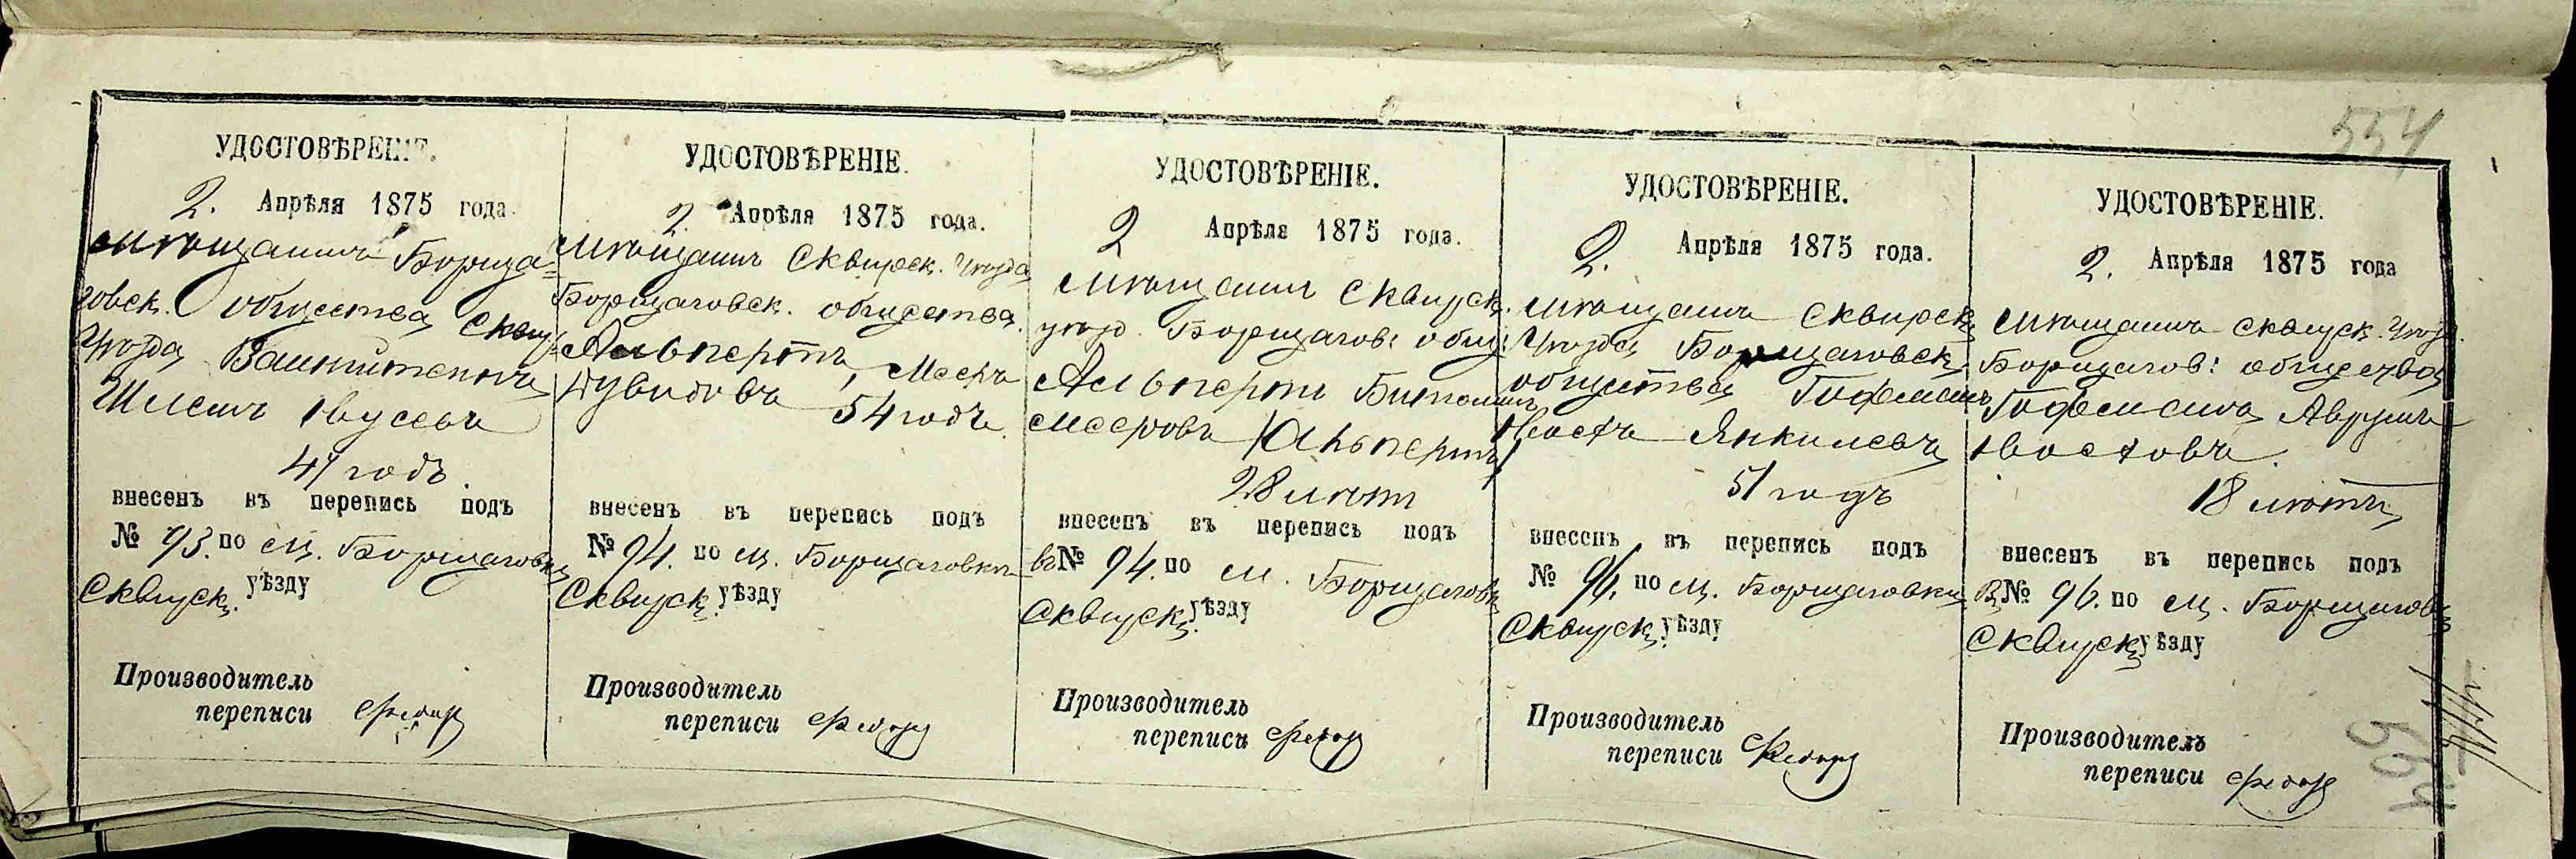 554
УДОСТОВѢРЕНІЕ.
2. Апрѣля 1875 года.
Мѣщанинъ Борща-
говск. общества Сквир.
Уѣзда Вайнштейнъ
Шлема
41 годъ.
внесенъ въ перепись подъ
№ 93. по м. Борщаговки
Сквирск. уѣзду
Производитель
переписи
УДОСТОВѢРЕНІЕ.
2. Апрѣля 1875 года.
Мѣщанинъ Сквирск. Уѣзда
Борщаговск. общества.
Альпертъ, Мееръ
Дувидовъ 54 годъ
внесенъ въ перепись подъ
№ 94. по м. Борщаговки
Сквирск. уѣзду
Производитель
переписи
УДОСТОВѢРЕНІЕ.
2 Апрѣля 1875 года.
Мѣщанинъ Сквирск.
уѣзд. Борщагов: общ:
Альпертъ
Мееровъ Альпертъ
28 лѣтъ
внесенъ въ перепись подъ
въ № 94. по м. Борщаговк
Сквирск. уѣзду
Производитель
переписи
УДОСТОВѢРЕНІЕ.
2. Апрѣля 1875 года.
Мѣщанинъ Сквирск
Уѣзда Борщаговск
общества Гофманъ
Янкилевъ
51 годъ
внесенъ въ перепись подъ
№ 96. по м. Борщаговки
Сквирск. уѣзду
Производитель
переписи
УДОСТОВѢРЕНІЕ.
2. Апрѣля 1875 года
Мѣщанинъ Сквирск. Уѣзд.
Борщагов: общества
Гофманъ Аврумъ
18 лѣтъ
внесенъ въ перепись подъ
въ № 96. по м. Борщаговк
Сквирск уѣзду
Производитель
переписи
554